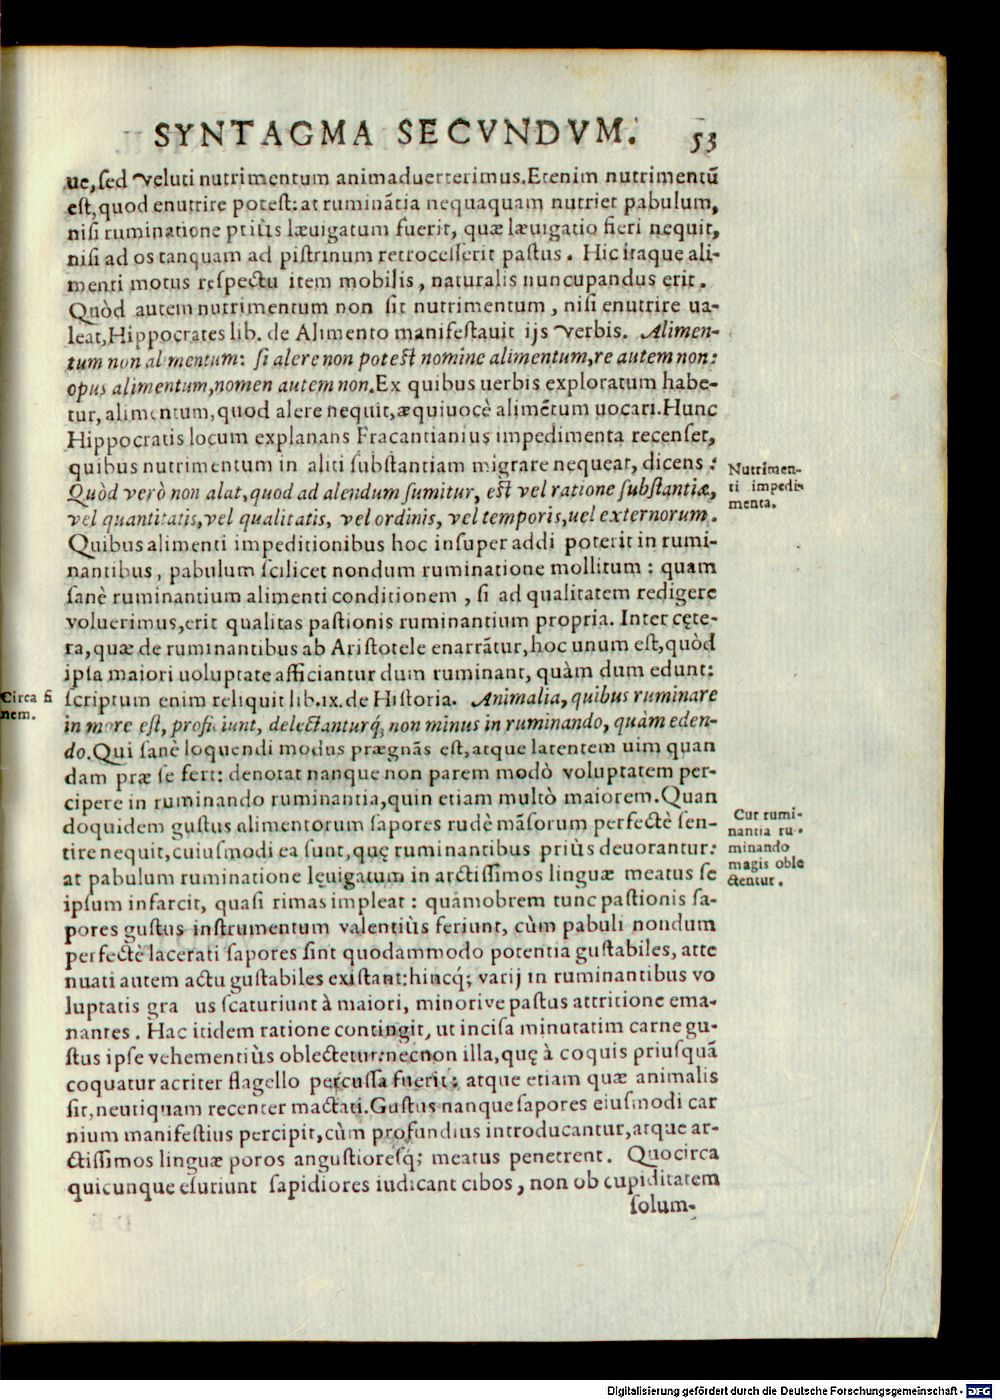 SYNTAGMA SECVNDVM. 53
ue, sed veluti nutrimentum animaduerterimus. Etenim nutrimentũ
est, quod enutrire potest: at ruminãtia nequaquam nutriet pabulum,
nisi ruminatione priùs læuigatum fuerit, quæ læuigatio fieri nequit,
nisi ad os tanquam ad pistrinum retrocesserit pastus. Hic itaque ali-
menti motus respectu item mobilis, naturalis nuncupandus erit.
Quòd autem nutrimentum non sit nutrimentum, nisi enutrire ua-
leat, Hippocrates lib. de Alimento manifestauit ijs verbis. Alimen-
tum non alimentum: si alere non potest nomine alimentum, re autem non:
opus alimentum, nomen autem non. Ex quibus uerbis exploratum habe-
tur, alimentum, quod alere nequit, æquiuocè alimẽtum uocari. Hunc
Hippocratis locum explanans Fracantianius impedimenta recenset,
quibus nutrimentum in aliti substantiam migrare nequeat, dicens:
Quòd verò non alat, quod ad alendum sumitur, est vel ratione substantiæ,
vel quantitatis, vel qualitatis, vel ordinis, vel temporis, uel externorum.
Nutrimen-
ti impedi-
menta.
Quibus alimenti impeditionibus hoc insuper addi poterit in rumi-
nantibus, pabulum scilicet nondum ruminatione mollitum: quam
sanè ruminantium alimenti conditionem, si ad qualitatem redigere
voluerimus, erit qualitas pastionis ruminantium propria. Inter cęte-
ra, quæ de ruminantibus ab Aristotele enarrãtur, hoc unum est, quòd
ipsa maiori uoluptate afficiantur dum ruminant, quàm dum edunt:
Circa fi
nem.
scriptum enim reliquit lib. ix. de Historia. Animalia, quibus ruminare
in more est, proficiunt, delectanturq́; non minus in ruminando, quàm eden-
do. Qui sanè loquendi modus prægnãs est, atque latentem uim quan
dam præ se fert: denotat nanque non parem modò voluptatem per-
cipere in ruminando ruminantia, quin etiam multò maiorem. Quan
doquidem gustus alimentorum sapores rudè mãsorum perfectè sen-
tire nequit, cuiusmodi ea sunt, quę ruminantibus priùs deuorantur:
at pabulum ruminatione lęuigatum in arctissimos linguæ meatus se
Cur rumi-
nantia ru-
minando
magis oble
ctentur.
ipsum infarcit, quasi rimas impleat: quamobrem tunc pastionis sa-
pores gustus instrumentum valentiùs feriunt, cùm pabuli nondum
perfectè lacerati sapores sint quodammodo potentia gustabiles, atte
nuati autem actu gustabiles existant: hincq́; varij in ruminantibus vo
luptatis gra us scaturiunt à maiori, minorive pastus attritione ema-
nantes. Hac itidem ratione contingit, ut incisa minutatim carne gu-
stus ipse vehementiùs oblectetur: necnon illa, quę à coquis priusquã
coquatur acriter flagello percussa fuerit: atque etiam quæ animalis
sit, neutiquam recenter mactati. Gustus nanque sapores eiusmodi car
nium manifestius percipit, cùm profundius introducantur, atque ar-
ctissimos linguæ poros angustioresq́; meatus penetrent. Quocirca
quicunque esuriunt sapidiores iudicant cibos, non ob cupiditatem
solum-
Digitalisierung gefördert durch die Deutsche Forschungsgemeinschaft - DFG